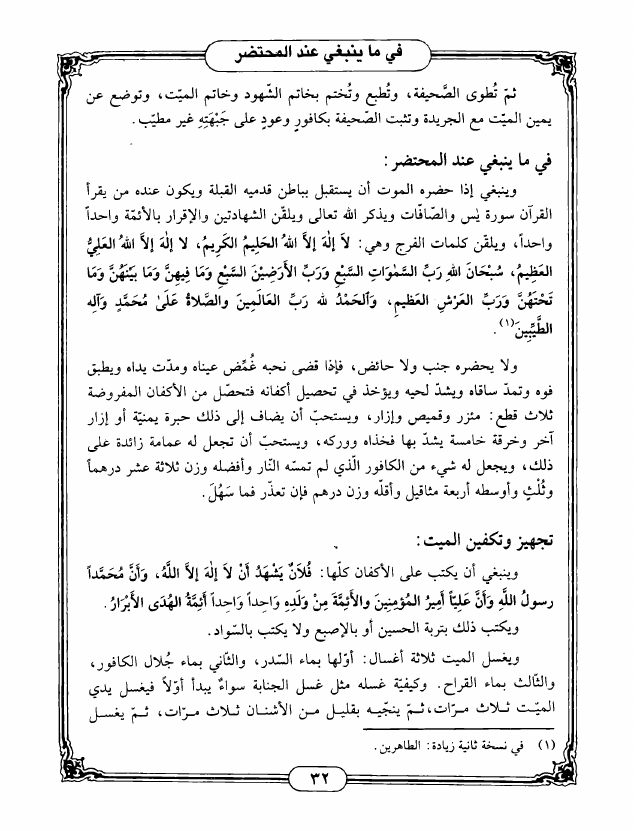 في ما ينبغي عند المحتضر
ثمّ تُطوى الصَّحيفة، وتُطبع وتُختم بخاتم الشّهود وخاتم الميّت، وتوضع عن
يمين الميّت مع الجريدة وتثبت الصّحيفة بكافورٍ وعودٍ على جَبْهَتِهِ غير مطيّب.
في ما ينبغي عند المحتضر:
وينبغي إذا حضره الموت أن يستقبل بباطن قدميه القبلة ويكون عنده من يقرأ
القرآن سورة يٰس والصّافّات ويذكر الله تعالى ويلقّن الشهادتين والإقرار بالأئمّة واحداً
واحداً، ويلقّن كلمات الفرج وهي: لاَ إلٰهَ إلاَّ اللهُ الحَلِيمُ الكَرِيمُ، لا إلٰهَ إلاَّ اللهُ العَلِيُّ
العَظِيمُ، سُبْحَانَ اللهِ رَبِّ السَّمٰوَاتِ السَّبْعِ وَرَبِّ الأَرَضِيْنَ السَّبْعِ وَمَا فِيهِنَّ وَمَا بَيْنَهُنَّ وَمَا
تَحْتَهُنَّ وَرَبِّ العَرْشِ العَظِيمِ، وَالحَمْدُ لله رَبِّ العَالَمِينَ والصَّلاةُ عَلَىٰ مُحَمَّدٍ وَآلِهِ
الطَّيِّبِينَ(١).
ولا يحضره جنب ولا حائض، فإذا قضى نحبه غُمِّض عيناه ومدّت يداه ويطبق
فوه وتمدّ ساقاه ويشدّ لحيه ويؤخذ في تحصيل أكفانه فتحصّل من الأكفان المفروضة
ثلاث قطع: مئزر وقميص وإزار، ويستحبّ أن يضاف إلى ذلك حبرة يمنيّة أو إزار
آخر وخرقة خامسة يشدّ بها فخذاه ووركه، ويستحبّ أن تجعل له عمامة زائدة على
ذلك، ويجعل له شيء من الكافور الّذي لم تمسّه النّار وأفضله وزن ثلاثة عشر درهماً
وثُلْثٍ وأوسطه أربعة مثاقيل وأقلّه وزن درهم فإن تعذّر فما سَهُلَ.
تجهيز وتكفين الميت:
وينبغي أن يكتب على الأكفان كلّها: فُلاَنٌ يَشْهَدُ أَنْ لاَ إلٰهَ إلاَّ اللَّهُ، وَأنَّ مُحَمَّداً
رسولُ اللَّهِ وَأنَّ عَلِيّاً أمِيرُ المُؤْمِنِينَ والأئِمَّةَ مِنْ وَلَدِهِ وَاحِداً وَاحِداً أئِمَّةُ الهُدَى الأبْرَارُ.
ويكتب ذلك بتربة الحسين أو بالإصبع ولا يكتب بالسّواد.
ويغسل الميت ثلاثة أغسال: أوّلها بماء السّدر، والثّاني بماء جُلال الكافور،
والثّالث بماء القراح. وكيفيّة غسله مثل غسل الجنابة سواءٌ يبدأ أوّلاً فيغسل يدي
الميّت ثلاث مرّات، ثمّ ينجّيه بقليل من الأشنان ثلاث مرّات، ثمّ يغسل
(١) في نسخة ثانية زيادة: الطاهرين.
٣٢